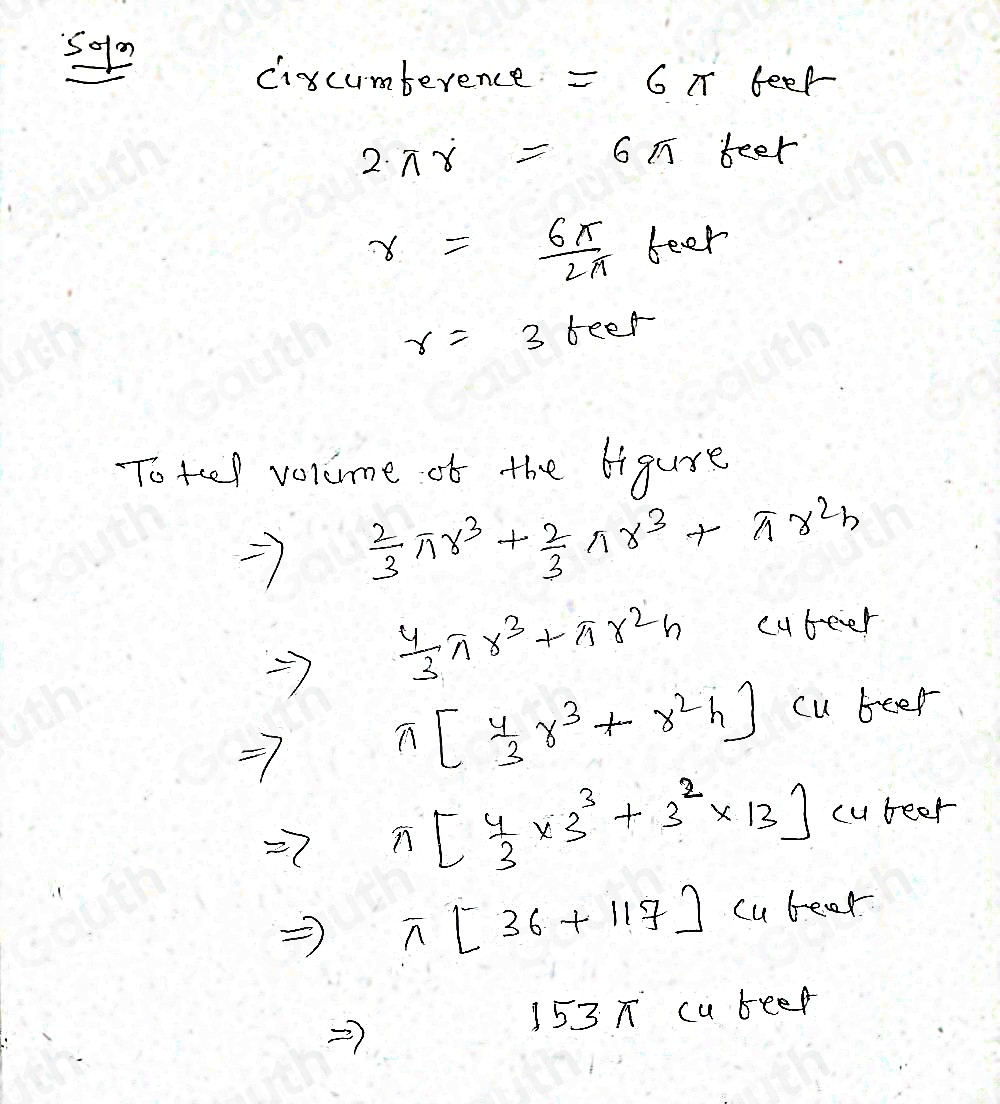 Soln
circumference = 6π feet
2πr = 6π feet
r = 6π/2π feet
r = 3 feet
Total volume of the figure
=> 2/3 πr³ + 2/3 πr³ + πr²h
=> 4/3 πr³ + πr²h cu feet
=> π[4/3 r³ + r²h] cu feet
=> π[4/3 × 3³ + 3² × 13] cu feet
=> π[36 + 117] cu feet
=> 153π cu feet